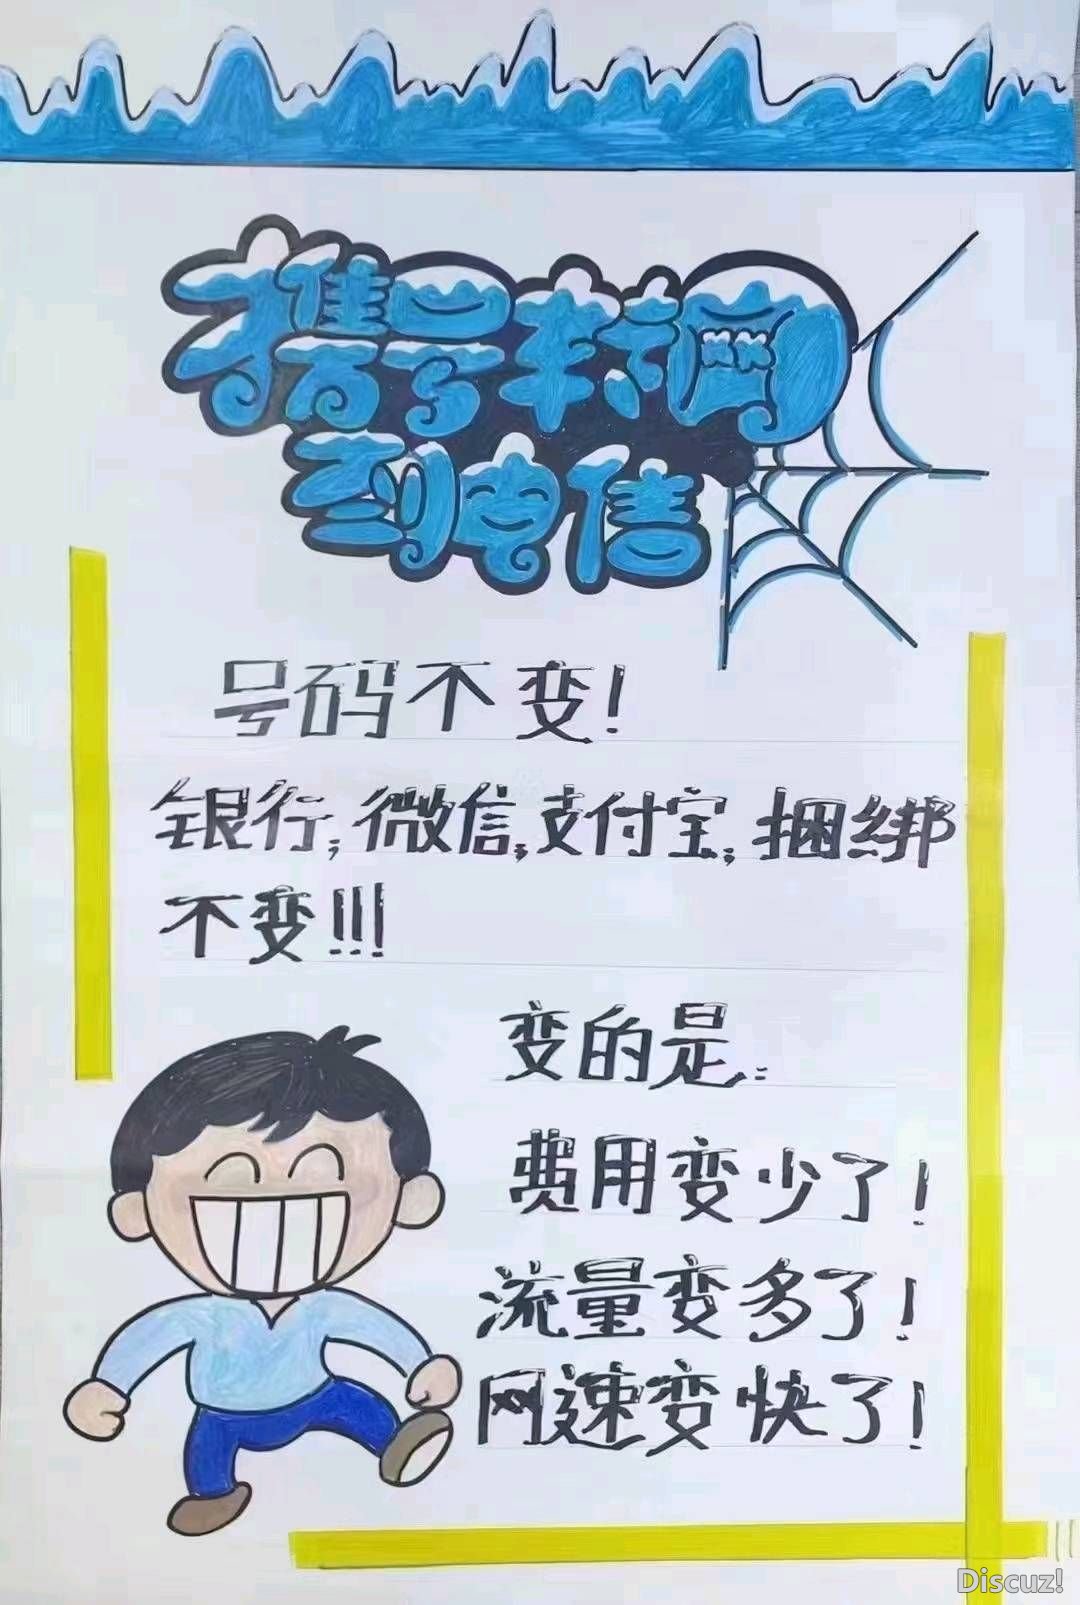 携号转网
到电信
号码不变!
银行;微信;支付宝;捆绑
不变!!!
变的是:
费用变少了!
流量变多了!
网速变快了!
Discuz!